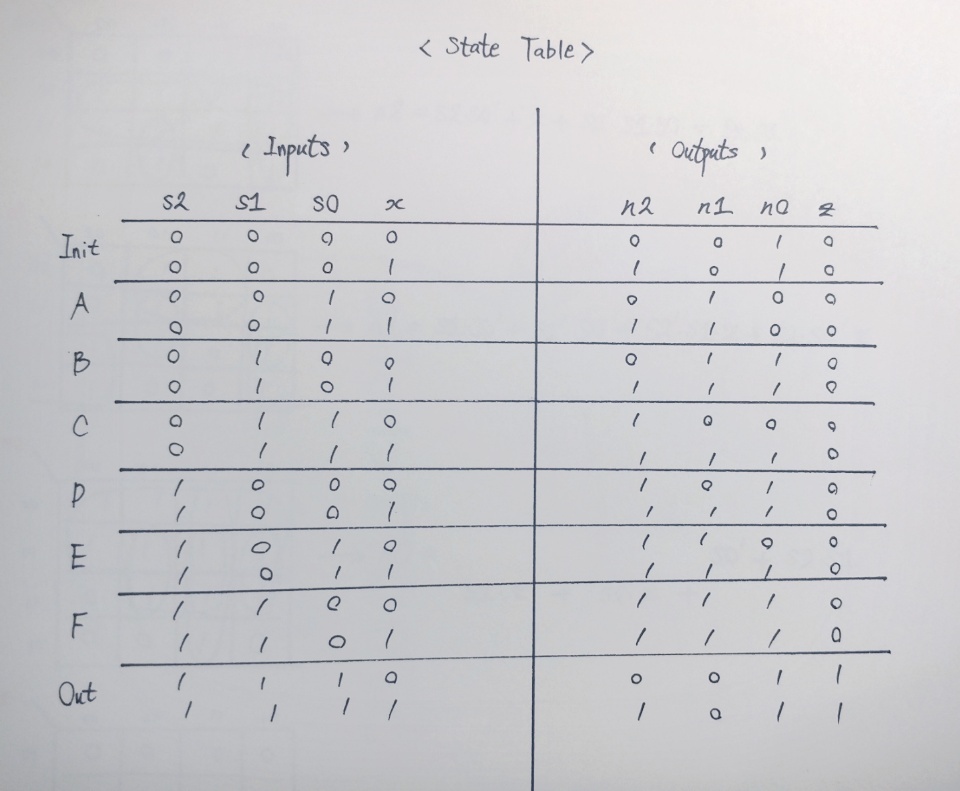 < State Table >
< Inputs > < Outputs >
s2 s1 s0 x n2 n1 n0 z
Init 0 0 0 0 0 0 1 0
0 0 0 1 1 0 1 0
A 0 0 1 0 0 1 0 0
0 0 1 1 1 1 0 0
B 0 1 0 0 0 1 1 0
0 1 0 1 1 1 1 0
C 0 1 1 0 1 0 0 0
0 1 1 1 1 1 1 0
D 1 0 0 0 1 0 1 0
1 0 0 1 1 1 1 0
E 1 0 1 0 1 1 0 0
1 0 1 1 1 1 1 0
F 1 1 0 0 1 1 1 0
1 1 0 1 1 1 1 0
Out 1 1 1 0 0 0 1 1
1 1 1 1 1 0 1 1